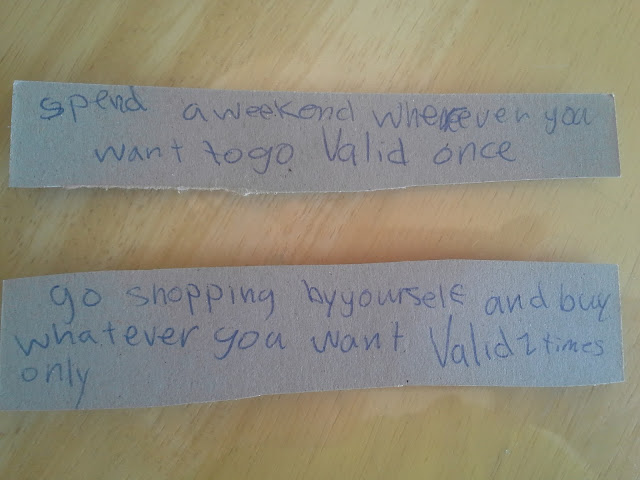 spend a weekend wherever you
want to go. Valid once
go shopping by yourself and buy
whatever you want. Valid 2 times
only